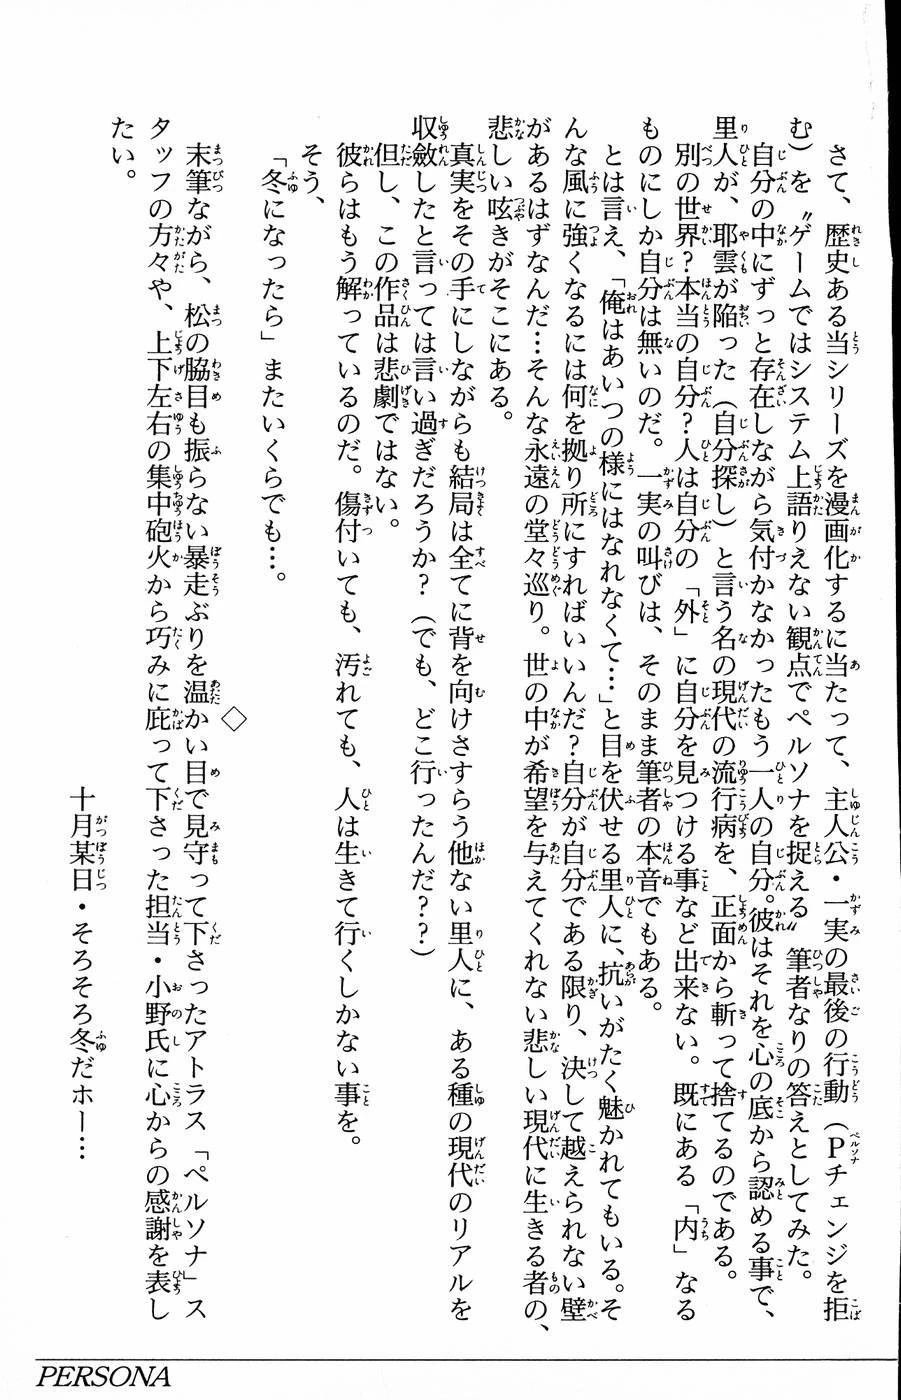 さて、歴史ある当シリーズを漫画化するに当たって、主人公・一実の最後の行動（Pチェンジを拒
む）を〝ゲームではシステム上語りえない観点でペルソナを捉える〟筆者なりの答えとしてみた。
自分の中にずっと存在しながら気付かなかったもう一人の自分。彼はそれを心の底から認める事で、
里人が、耶雲が陥った（自分探し）と言う名の現代の流行病を、正面から斬って捨てるのである。
別の世界？本当の自分？人は自分の「外」に自分を見つける事など出来ない。既にある「内」なる
ものにしか自分は無いのだ。一実の叫びは、そのまま筆者の本音でもある。
とは言え、「俺はあいつの様にはなれなくて…」と目を伏せる里人に、抗いがたく魅かれてもいる。そ
んな風に強くなるには何を拠り所にすればいいんだ？自分が自分である限り、決して越えられない壁
があるはずなんだ…そんな永遠の堂々巡り。世の中が希望を与えてくれない悲しい現代に生きる者の、
悲しい呟きがそこにある。
真実をその手にしながらも結局は全てに背を向けさすらう他ない里人に、ある種の現代のリアルを
収斂したと言っては言い過ぎだろうか？（でも、どこ行ったんだ？？）
但し、この作品は悲劇ではない。
彼らはもう解っているのだ。傷付いても、汚れても、人は生きて行くしかない事を。
そう、
「冬になったら」またいくらでも…。
◇
末筆ながら、松の脇目も振らない暴走ぶりを温かい目で見守って下さったアトラス「ペルソナ」ス
タッフの方々や、上下左右の集中砲火から巧みに庇って下さった担当・小野氏に心からの感謝を表し
たい。
十月某日・そろそろ冬だホー…
PERSONA